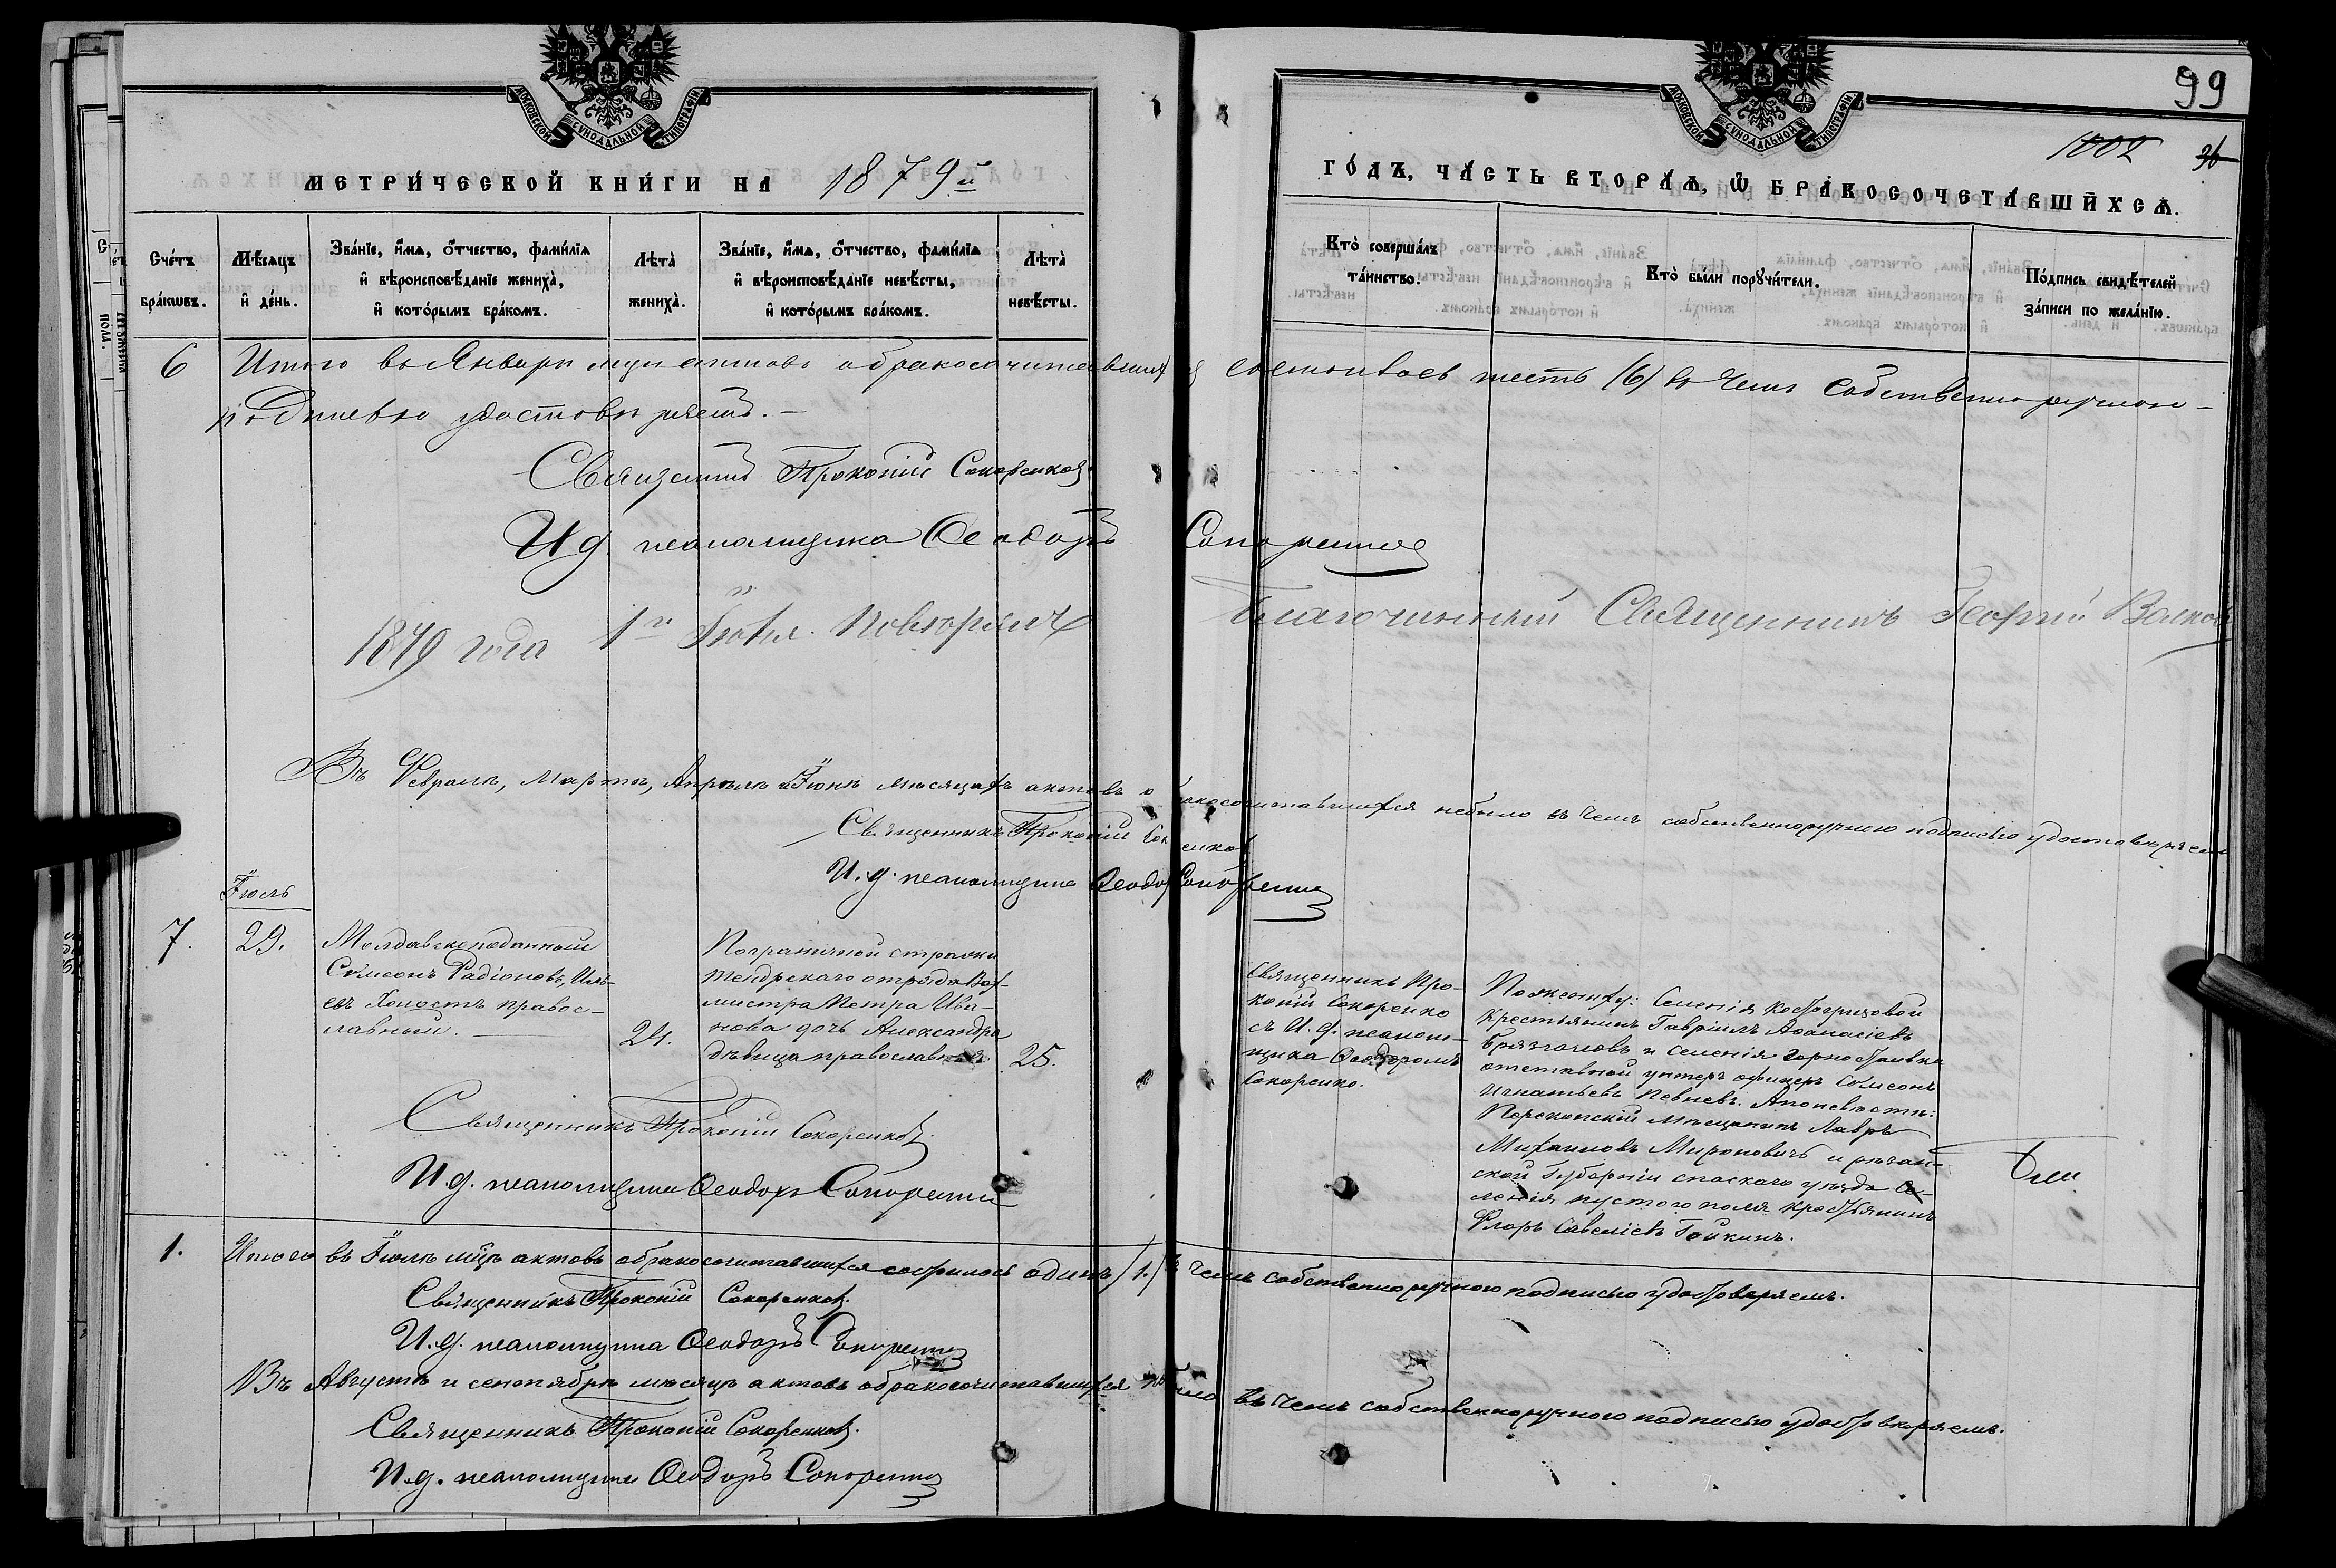 МОСКОВСКОЙ СѴНОДАЛЬНОЙ ТИПОГРАФІИ
МЕТРИ́ЧЕСКОЙ КНИ́ГИ НА 1879й
Сче́тъ бра́кѡвъ.
Мѣ́сяцъ и҆ де́нь.
Зва́нїе, и҆́мѧ, ѻ҆́тчество, фами́лїѧ и҆ вѣроисповѣ́данїе жениха̀, и҆ кото́рымъ бра́комъ.
Лѣта̀ жениха̀.
Зва́нїе, и҆́мѧ, ѻ҆́тчество, фами́лїѧ и҆ вѣроисповѣ́данїе невѣ́сты, и҆ кото́рымъ бра́комъ.
Лѣта̀ невѣ́сты.
МОСКОВСКОЙ СѴНОДАЛЬНОЙ ТИПОГРАФІИ
99
1002 36
ГО́ДЪ, ЧА́СТЬ ВТОРА́Ѧ, Ѡ҆ БРАКОСОЧЕТА́ВШИХСѦ.
Кто̀ соверша́лъ та́инство.
Кто̀ бы́ли порꙋчи́тели.
По́дпись свидѣ́телей за́писи по жела́нїю.
6 Итого въ Январѣ мцѣ актовъ о бракосочитавшихся состоялось шесть (6) въ чемъ собственноручною
подписью удостовѣряемъ.—
Священникъ Прокопій Сокоренковъ
И д псаломщика Ѳеодоръ Сокоренко
1879 года 1го Іюля. Повѣрялъ Благочинный Священникъ Георгій Волковъ
Въ Февралѣ, Мартѣ, Апрѣлѣ и Іюнѣ мѣсяцахъ актовъ о бракосочитавшихся небыло въ чемъ собственноручною подписью удостовѣряемъ
Священникъ Прокопій Сокоренковъ
И. д. псаломщика Ѳеодоръ Сокоренко
Іюль
7. 29.
Молдавскоподанный
Сѵмеонъ Радіоновъ, Иль-
евъ Холостъ правос-
лавный.
24.
Пограничной стражи
Тендрскаго отряда Вах-
мистра Петра Ива-
нова дочь Александра
дѣвица православная
25.
Священникъ Про-
копій Сокоренко
съ И. д. псалом-
щика Ѳеодоромъ
Сокоренко.
По женихѣ: Селенія Костогризовой
Крестьянинъ Гавріилъ Аѳанасіевъ
Брязгоновъ и селенія Горностаивки
отставной унтеръ офицеръ Сѵмеонъ
Игнатьевъ Певневъ. А по невѣстѣ:
Перекопскій мѣщанинъ Лавръ
Михаиловъ Мироновичъ и рязан-
ской Губерніи спаскаго уѣзда Се-
ленія пустого поля крестьянинъ
Флоръ Савеліевъ Гойкинъ.
Священникъ Прокопій Сокоренковъ
И. д. псаломщика Ѳеодоръ Сокоренко
1. Итого въ Іюлѣ мцѣ актовъ о бракосочитавшихся состоялось одинъ (1.) въ чемъ собственноручною подписью удостоверяемъ.
Священникъ Прокопій Сокоренковъ.
И. д. псаломщика Ѳеодоръ Сокоренко
Въ Августѣ и сентябрѣ мѣсяцѣ актовъ о бракосочитавшихся небыло въ чемъ собственноручною подписью удостовѣряемъ.
Священникъ Прокопій Сокоренковъ.
И. д. псаломщика Ѳеодоръ Сокоренко